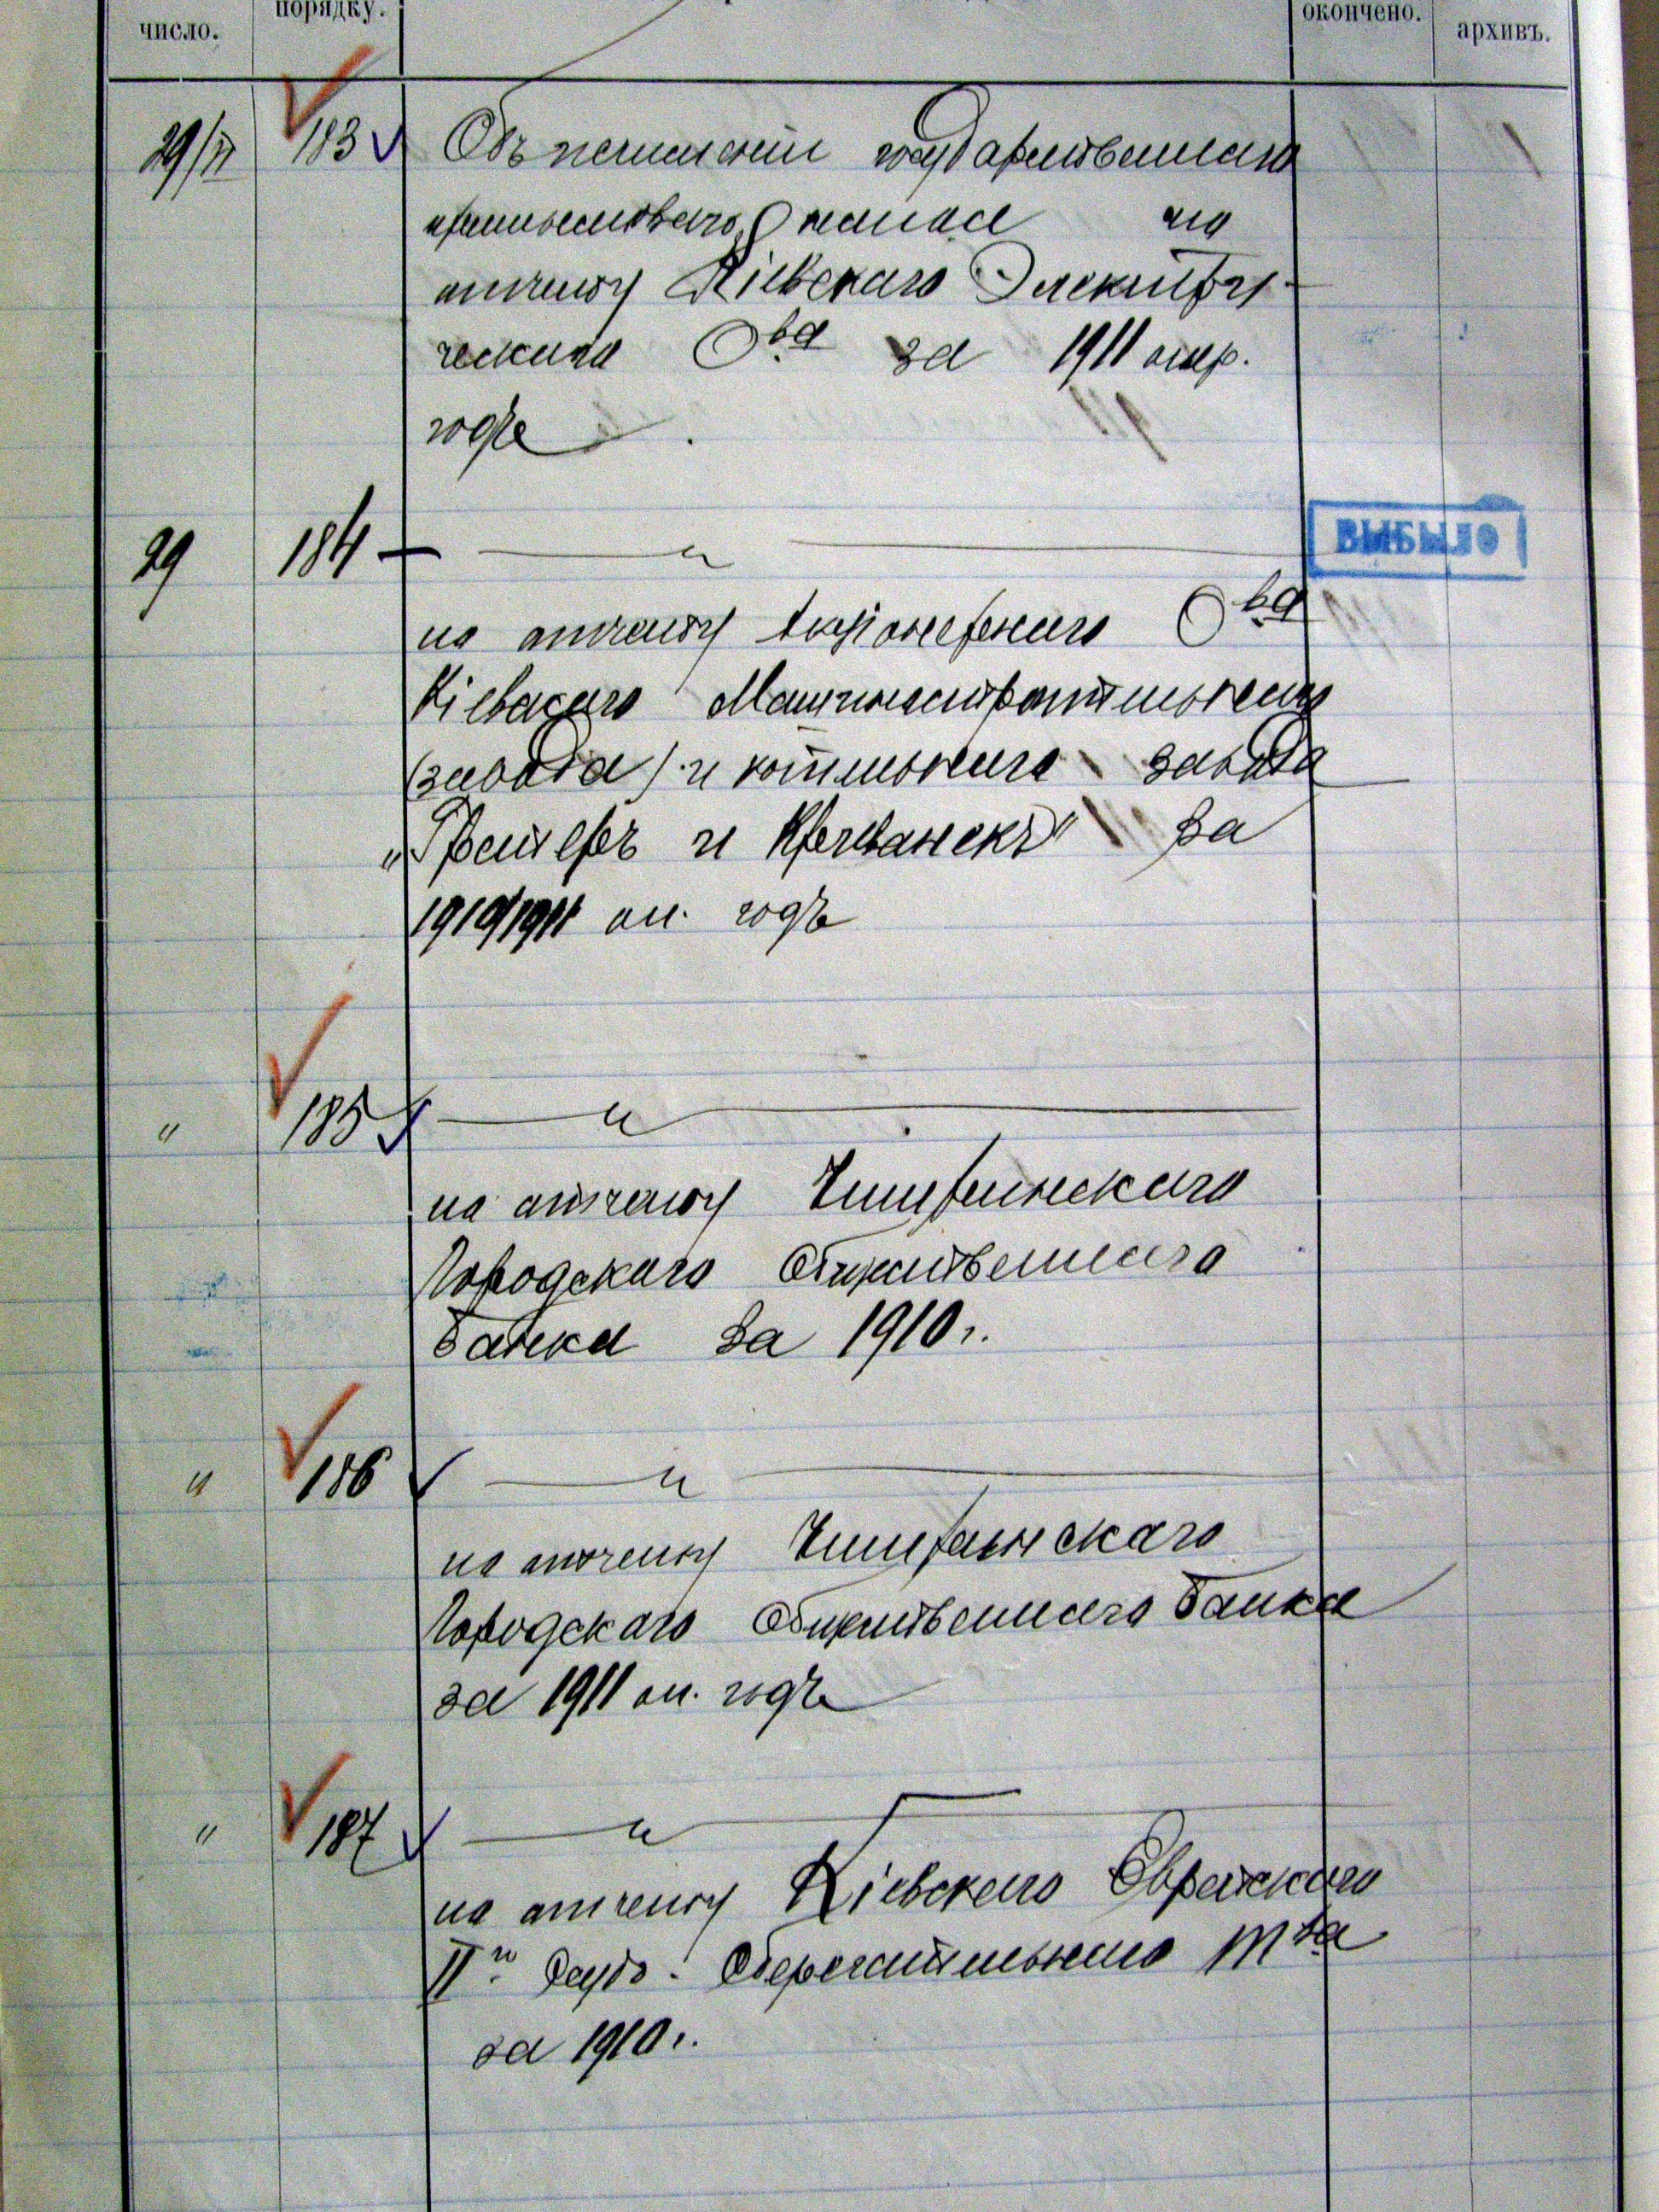 число.
порядку.
окончено.
архивъ.
29/VI 183 Объ исчисленіи государственнаго
промысловаго налога по
отчету Кіевскаго Электри-
ческаго О-ва за 1911 опер.
годъ.
29 184 — " —
ВЫБЫЛО
по отчету Акціонернаго О-ва
Кіевскаго Машиностроительнаго
(завода) и котельнаго завода
„Гретеръ и Криванекъ" за
1910/1911 оп. годъ
" 185 — " —
по отчету Чигиринскаго
Городского Общественнаго
Банка за 1910 г.
" 186 — " —
по отчету Чигиринскаго
Городскаго Общественнаго Банка
за 1911 оп. годъ
" 187 — " —
по отчету Кіевскаго Еврейскаго
II-го Ссудо-Сберегательнаго Т-ва
за 1910 г.